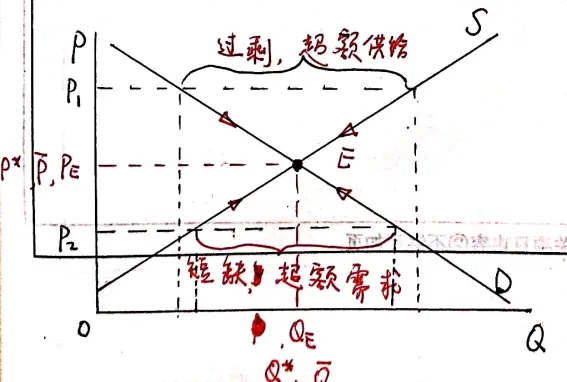 P
S
过剩,超额供给
P₁
P* P̄,P_E
E
P₂
短缺,超额需求
D
O
,Q_E
Q
Q*, Q̄